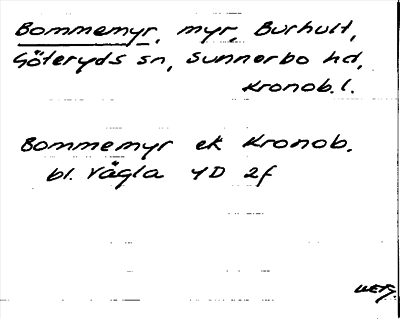 Bommemyr, myr, Burhult,
Göteryds sn, Sunnerbo hd,
Kronob. l.
Bommemyr ek Kronob.
bl. Vägla 4D 2f